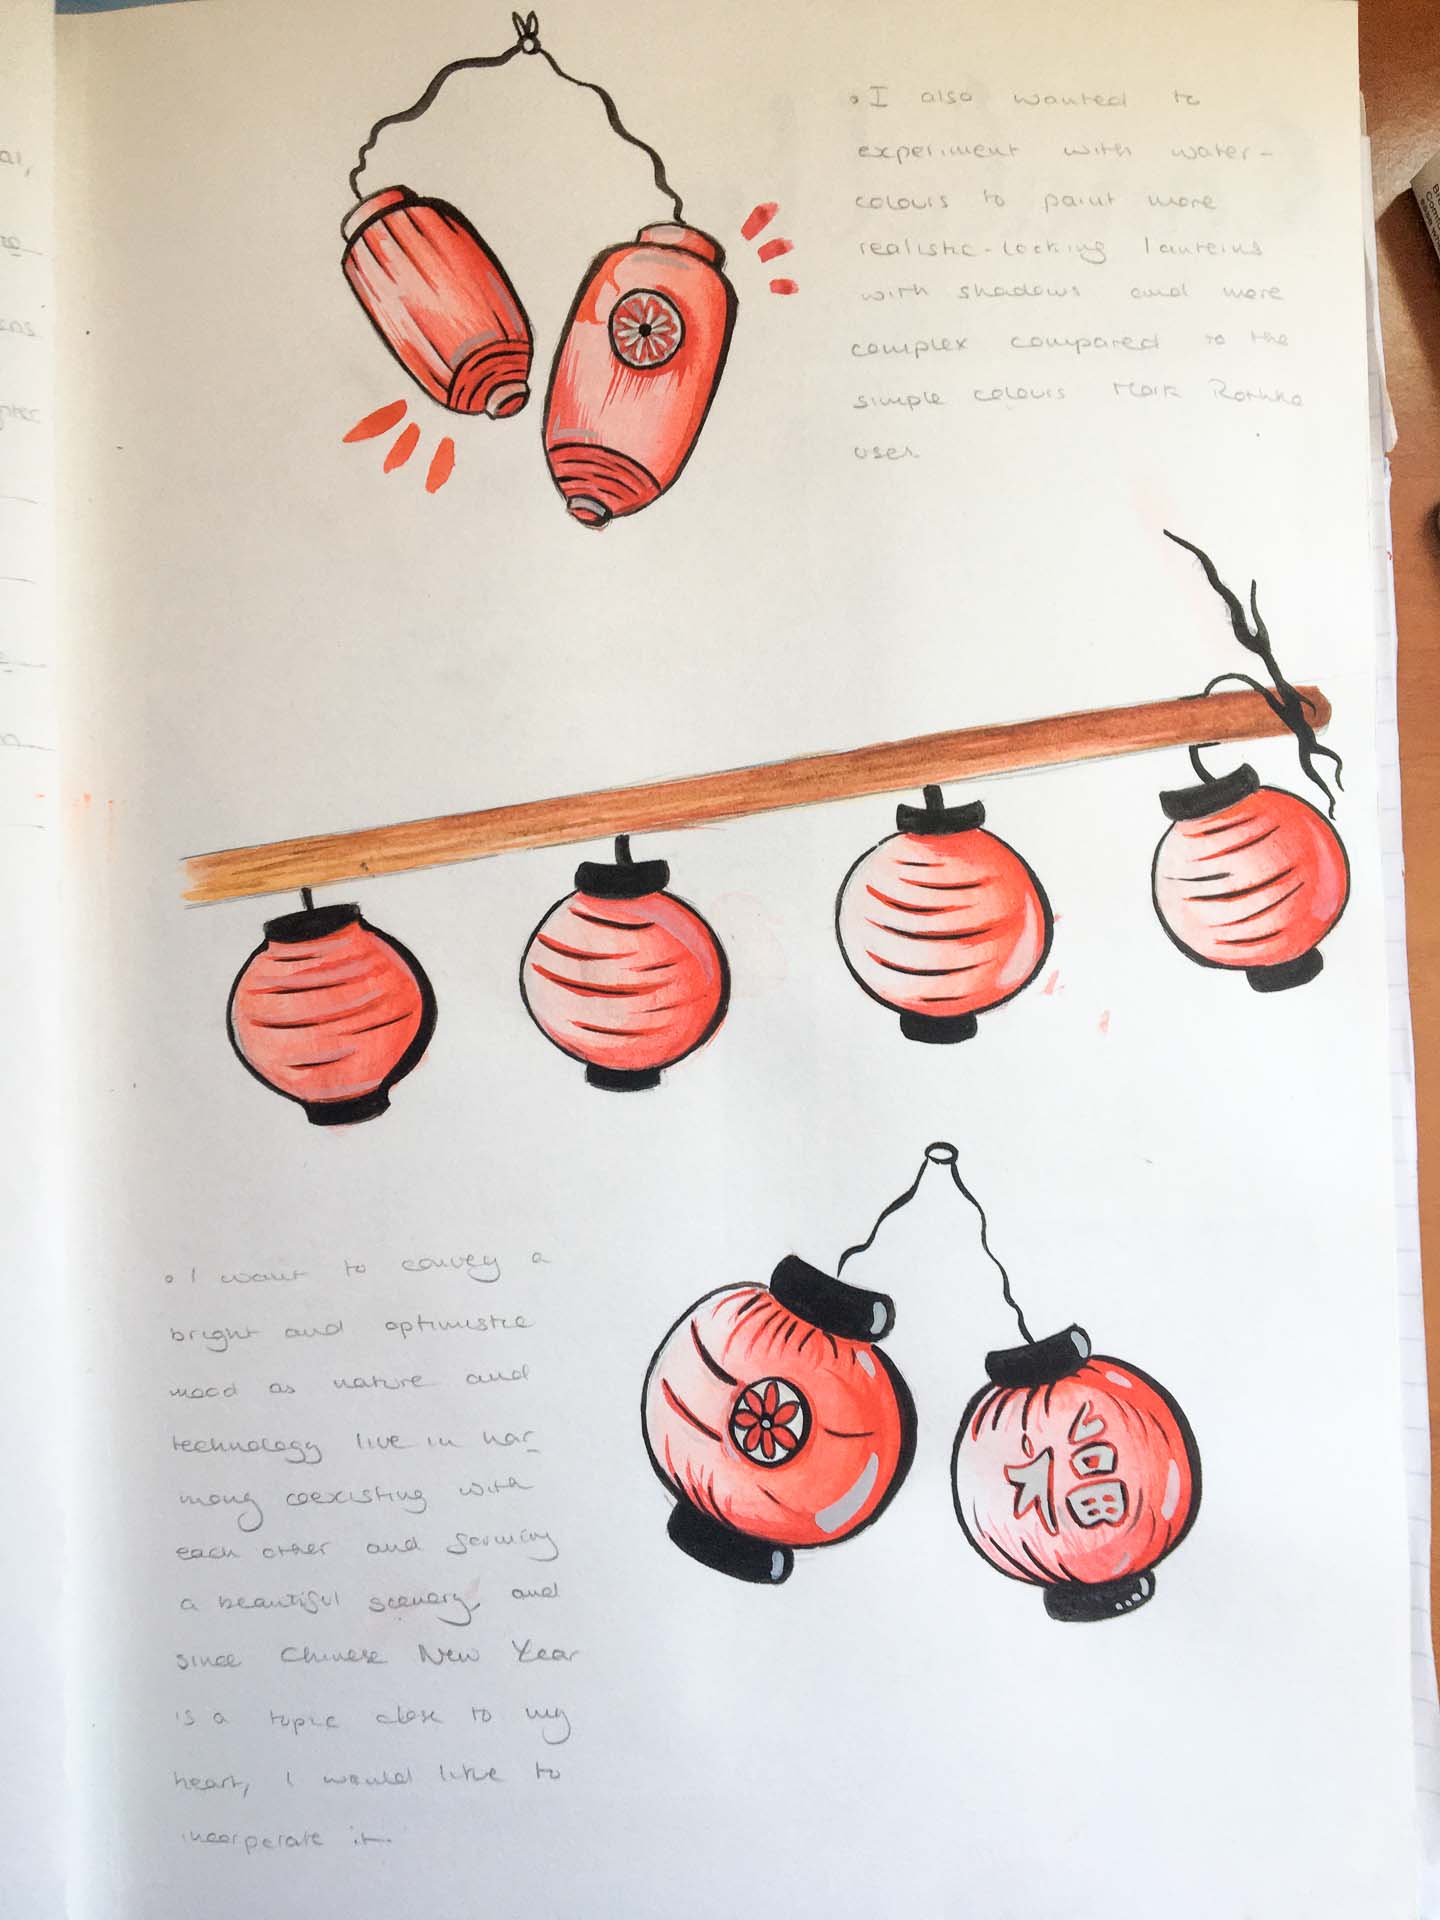 • I also wanted to
experiment with water-
colours to paint more
realistic-looking lanterns
with shadows and more
complex compared to the
simple colours Mark Rothko
uses.
福
• I want to convey a
bright and optimistic
mood as nature and
technology live in har-
mony coexisting with
each other and forming
a beautiful scenery, and
since Chinese New Year
is a topic close to my
heart, I would like to
incorperate it.